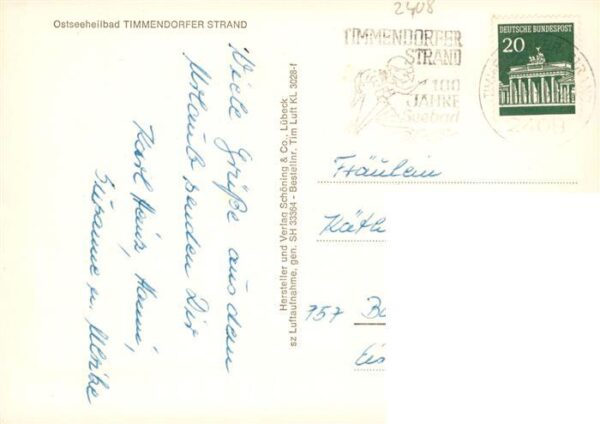 Ostseeheilbad TIMMENDORFER STRAND
Viele Grüße aus dem
Urlaub senden Dir
Karl Heinz, Hanni,
Susanne u. Ulrike
Hersteller und Verlag Schöning & Co., Lübeck
sz Luftaufnahme, gen. SH 33364 - Bestellnr. Tim Luft KL 3028-f
2408
TIMMENDORFER
STRAND
100
JAHRE
Seebad
DEUTSCHE BUNDESPOST
20
Fräulein
Käth
357